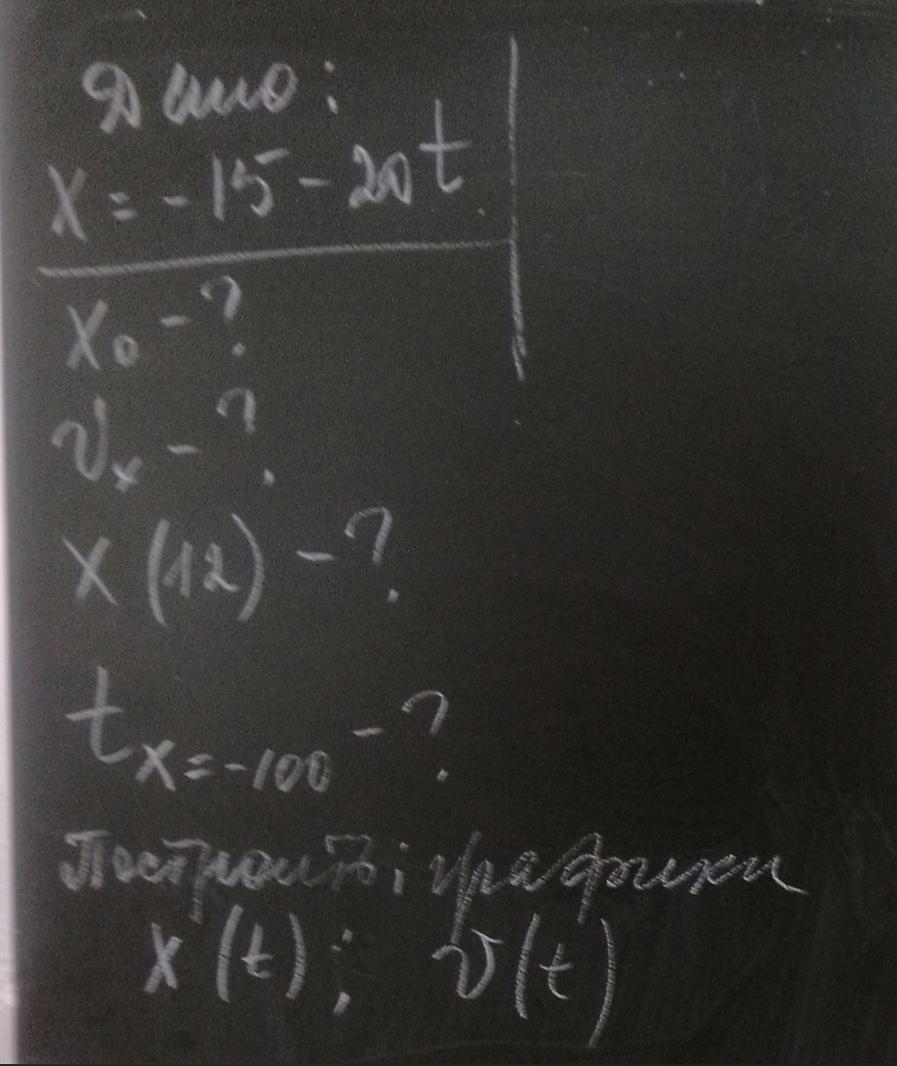 Дано:
x = -15 - 20t
x₀ - ?
vₓ - ?
x (12) - ?
t x=-100 - ?
Построить; графики
x (t); v(t)